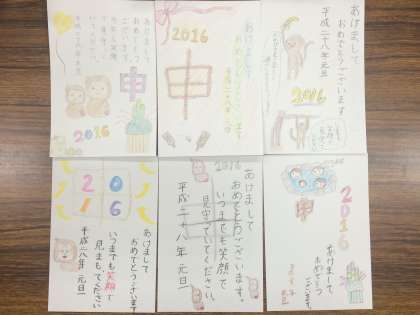 あけまして
おめでとう
ございます
平成二十八年元旦
申
2016
2016
あけまして
おめでとうございます
平成二十八年元旦
申
あけまして
おめでとうございます
平成二十八年元旦
2016
20
16
あけまして
おめでとうございます
いつまでも笑顔で
見まもってください
平成二八年元旦
2016
あけまして
おめでとうございます。
いつまでも笑顔で
見守っていてください。
平成二十八年元旦
2016
申
あけまして
おめでとう
ございます